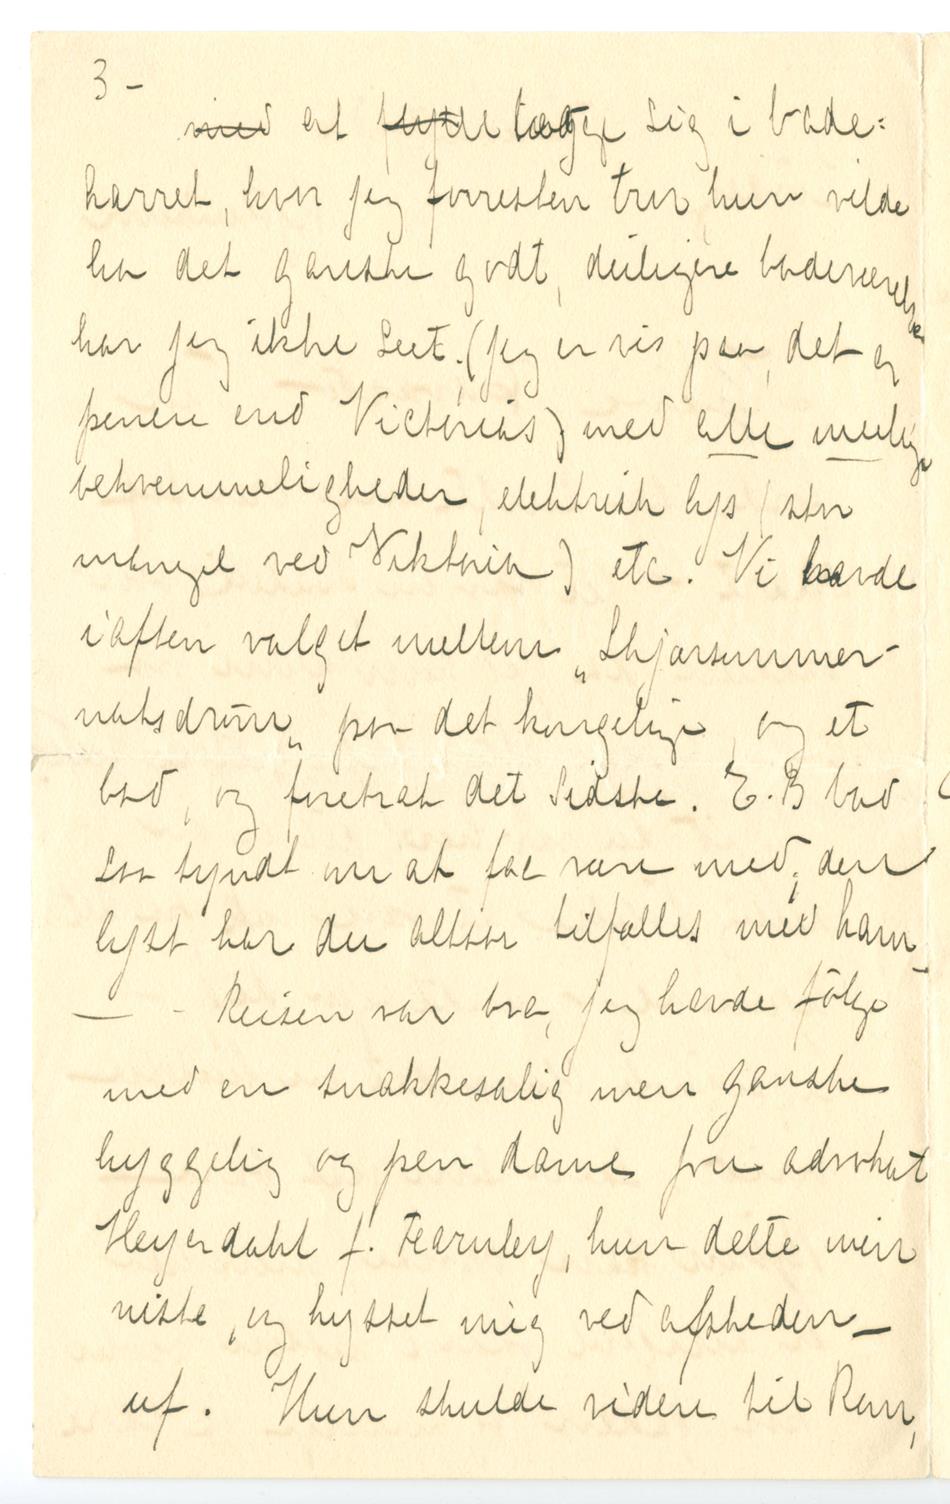 3 -
med at flytte lægge sig i bade:
karret, hvor jeg forresten tror hun vilde
ha det ganske godt, deiligere badeværelse
har jeg ikke seet. (jeg er vis paa, det er
penere end Victorias) med alle mulige
bekvemmeligheder, elektrisk lys (stor
mangel ved Viktoria) etc. Vi havde
iaften valget mellem „Skjærsummer-
natsdrøm„ paa det kongelige, og et
bad, og foretrak det sidste. E. B bad
saa tyndt om at faa være med; den
lyst har du altsaa tilfælles med ham_
— - Reisen var bra, jeg havde følge
med en snakkesalig men ganske
hyggelig og pen dame fru advokat
Heyerdahl f. Fearnley, hun delte min
niste, og kysset mig ved afskeden –
uf. Hun skulde videre til Rom,